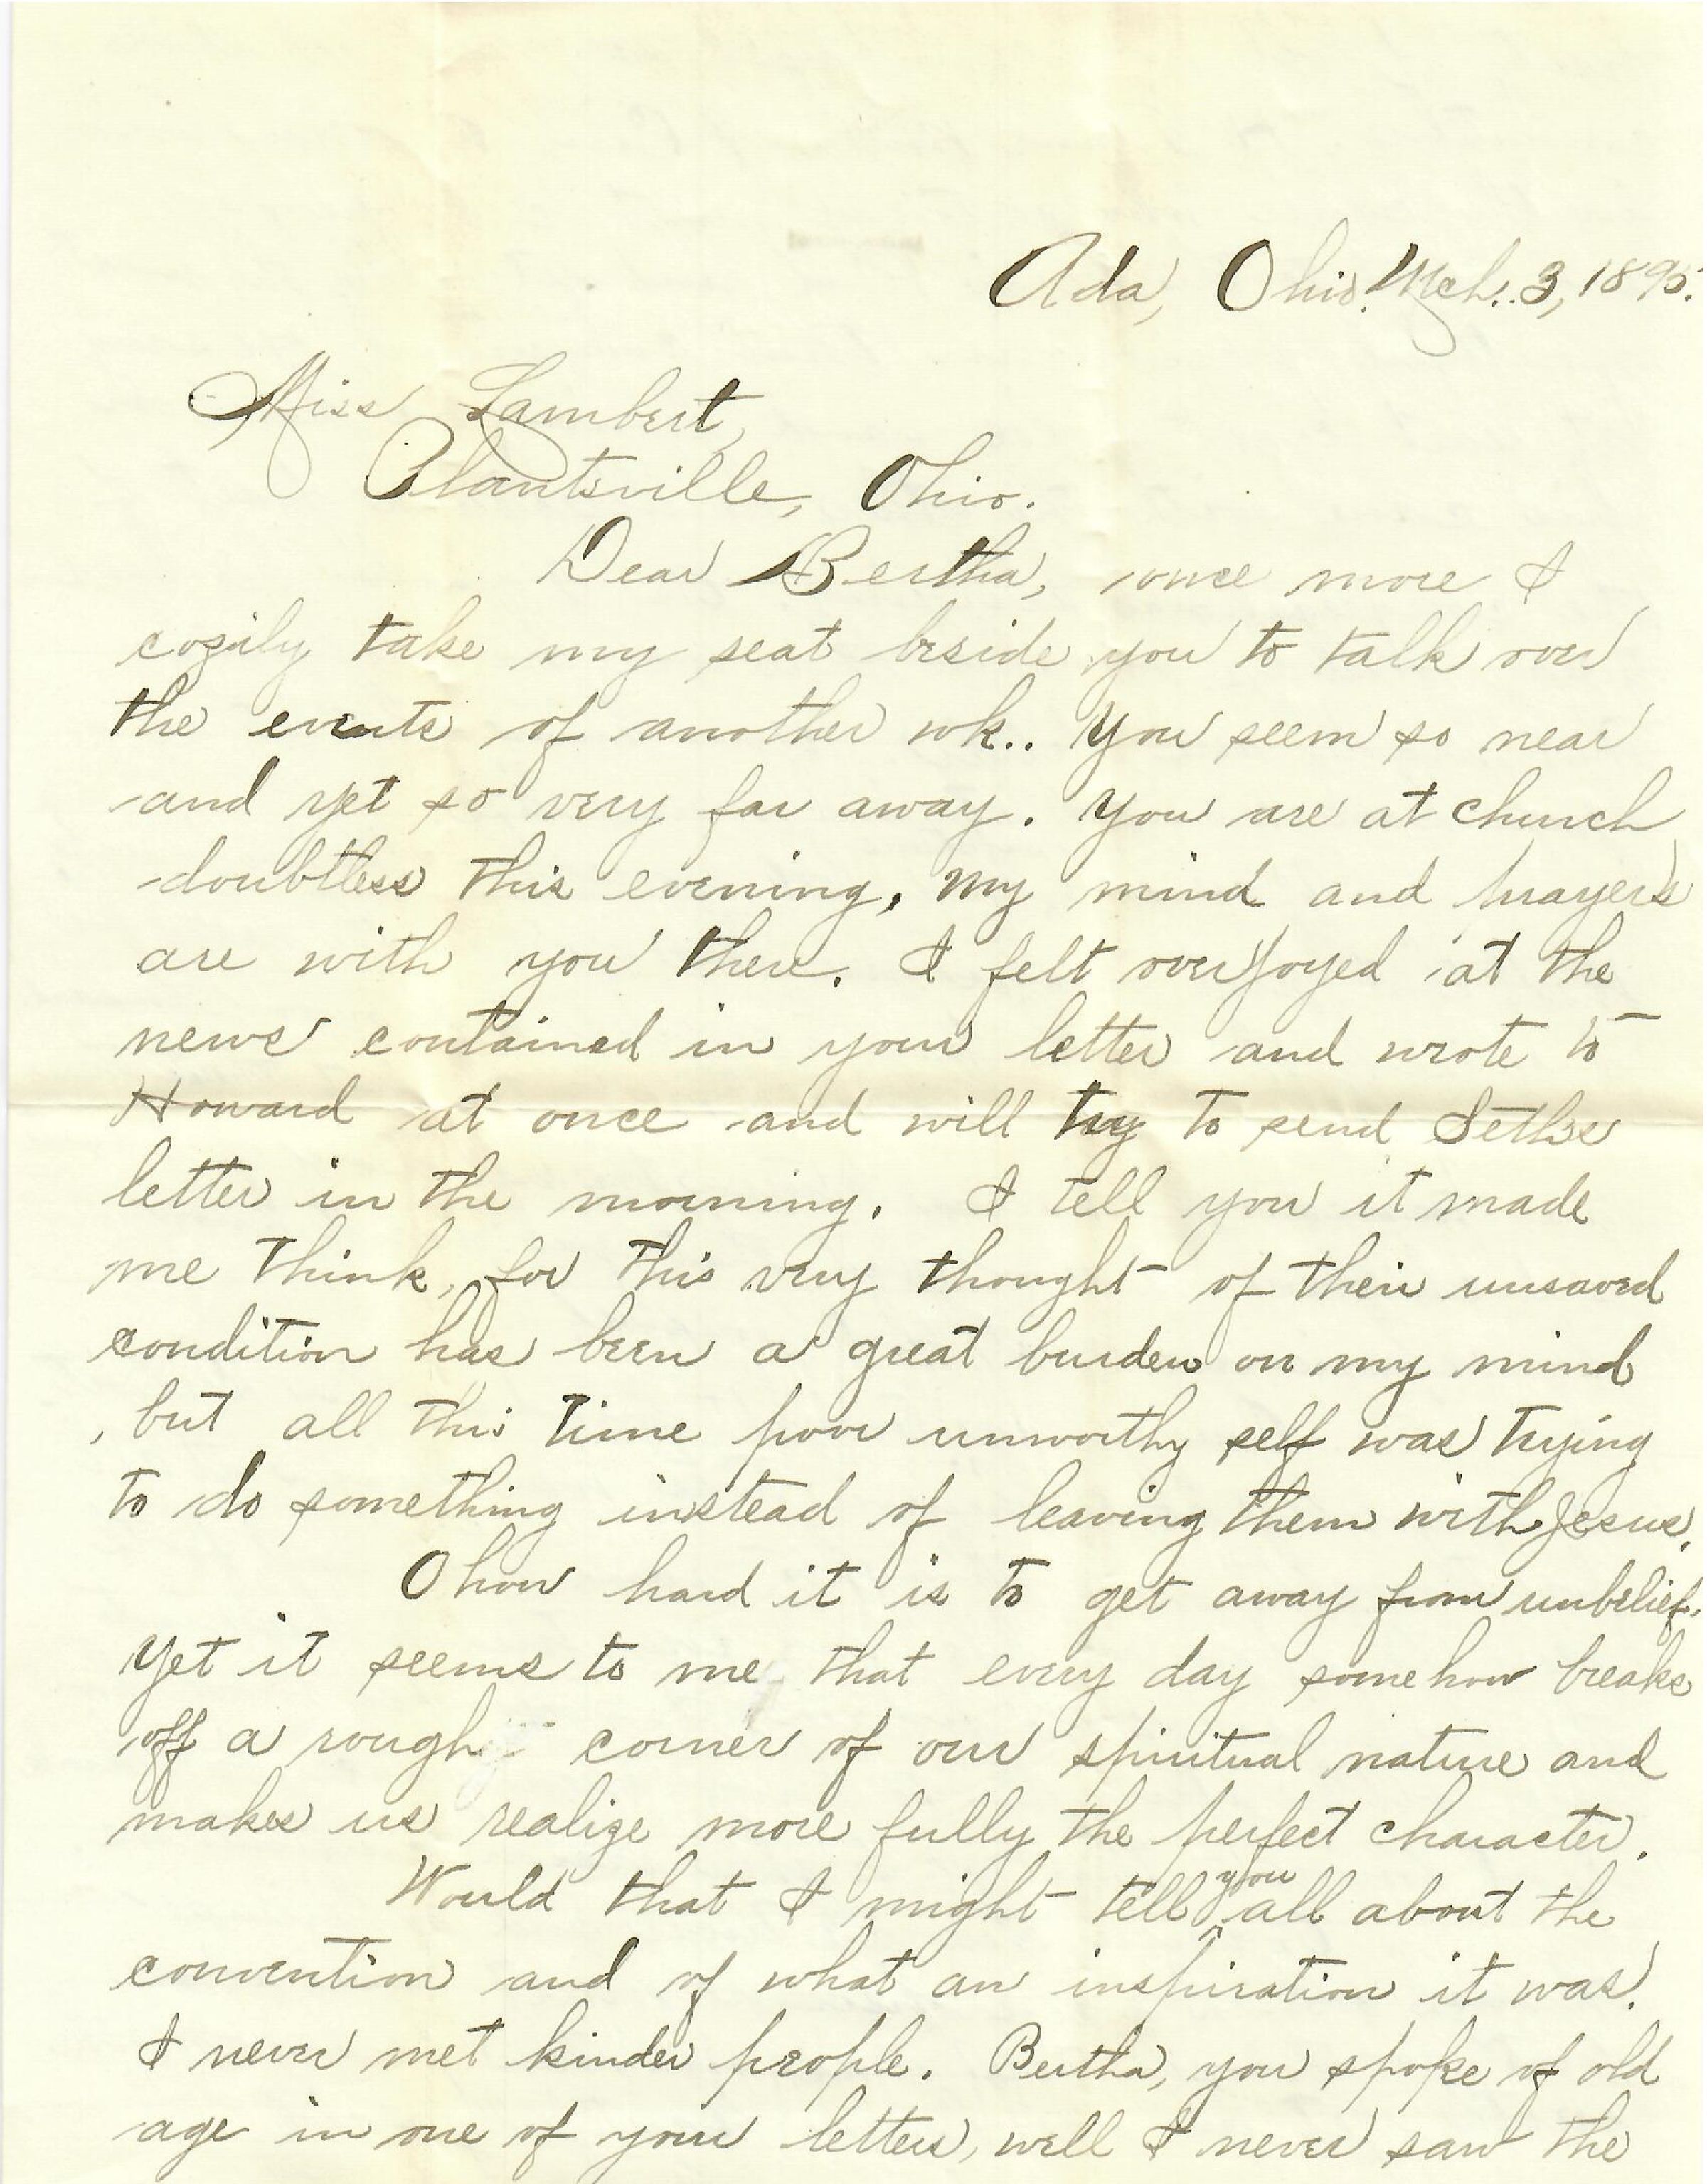 Ada, Ohio. Mch. 3, 1895.
Miss Lambert,
Plantsville, Ohio.
Dear Bertha, once more I
cozily take my seat beside you to talk over
the events of another wk.. You seem so near
and yet so very far away. You are at church
doubtless this evening, my mind and prayers
are with you there. I felt overjoyed at the
news contained in your letter and wrote to
Howard at once and will try to send Seth's
letter in the morning. I tell you it made
me think, for this very thought of their unsaved
condition has been a great burden on my mind
, but all this time poor unworthy self was trying
to do something instead of leaving them with Jesus.
O how hard it is to get away from unbelief.
Yet it seems to me that every day somehow breaks
off a rough corner of our spiritual nature and
makes us realize more fully the perfect character.
Would that I might tell you all about the
convention and of what an inspiration it was.
I never met kinder people. Bertha, you spoke of old
age in one of your letters, well I never saw the